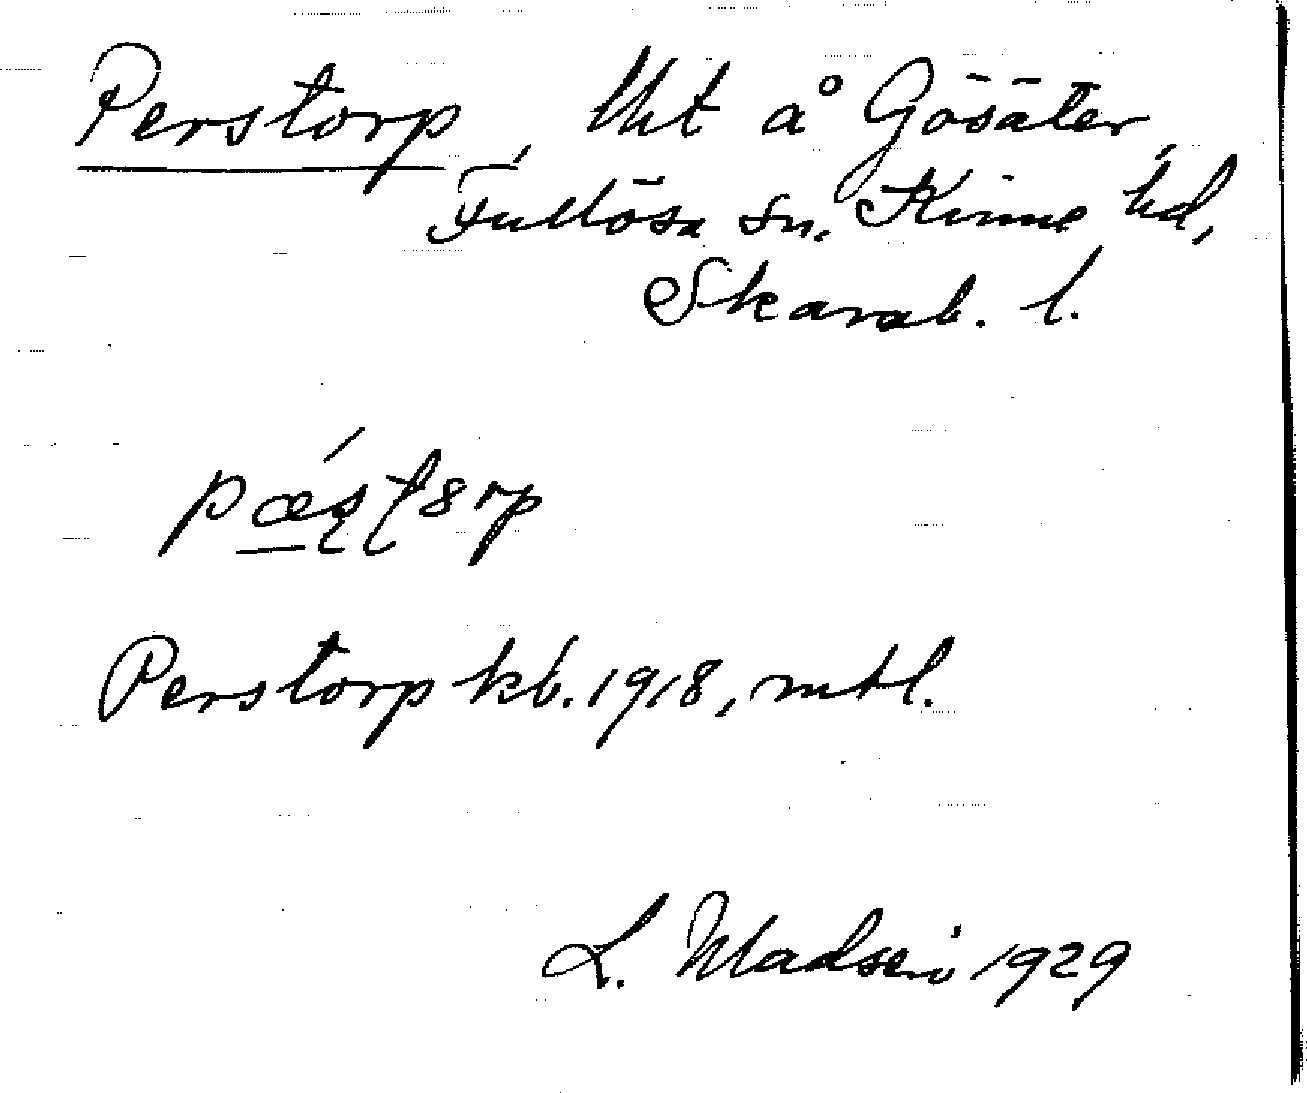 Perstorp, lht å Gösäter,
Fullösa sn, Kinne hd,
Skarab. l.
Perstorp kb. 1918, mtl.
L. Madsen 1929